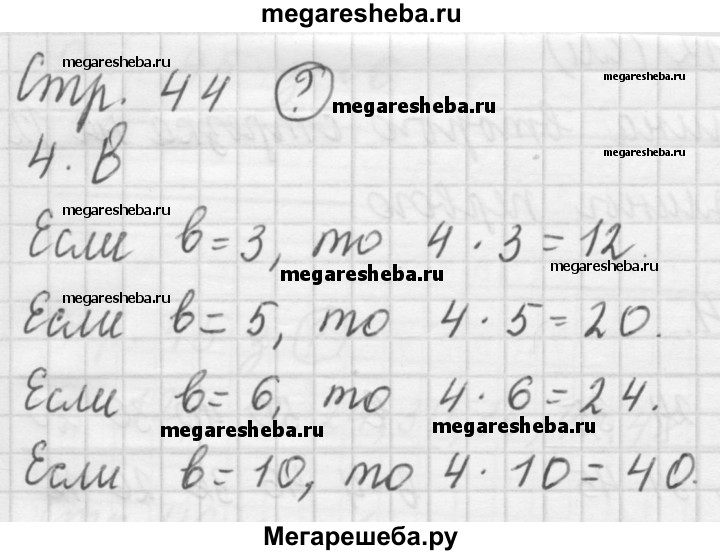 megaresheba.ru
megaresheba.ru
Стр. 44 ?
megaresheba.ru
megaresheba.ru
4 · в
megaresheba.ru
megaresheba.ru
Если в = 3, то 4 · 3 = 12.
megaresheba.ru
megaresheba.ru
megaresheba.ru
Если в = 5, то 4 · 5 = 20.
Если в = 6, то 4 · 6 = 24.
megaresheba.ru
megaresheba.ru
Если в = 10, то 4 · 10 = 40.
Мегарешеба.ру